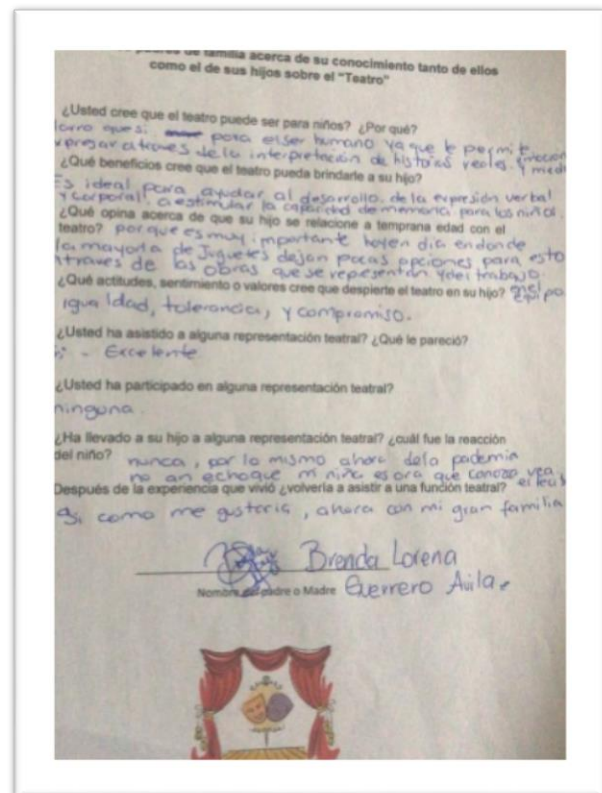 padres de familia acerca de su conocimiento tanto de ellos
como el de sus hijos sobre el "Teatro"
¿Usted cree que el teatro puede ser para niños? ¿Por qué?
que si para el ser humano ya que le permite
a traves de la interpretación de historias reales.
¿Qué beneficios cree que el teatro pueda brindarle a su hijo?
Es ideal para ayudar al desarrollo de la expresión verbal
y corporal, a estimular la capacidad de memoria para los niños.
¿Qué opina acerca de que su hijo se relacione a temprana edad con el
teatro? porque es muy importante hoy en dia en donde
la mayoria de Juguetes dejan pocas opciones para esto
traves de las obras que se representan y del trabajo
¿Qué actitudes, sentimiento o valores cree que despierte el teatro en su hijo? equipo
igualdad, tolerancia, y compromiso.
¿Usted ha asistido a alguna representación teatral? ¿Qué le pareció?
si - Excelente
¿Usted ha participado en alguna representación teatral?
ninguna.
¿Ha llevado a su hijo a alguna representación teatral? ¿cuál fue la reacción
del niño? nunca, por lo mismo ahora dela pademia
no an echo que mi niña es ora que conozo vea
Después de la experiencia que vivió ¿volvería a asistir a una función teatral?
Si como me gustaria, ahora con mi gran familia
Brenda Lorena
Nombre del padre o Madre Guerrero Avila